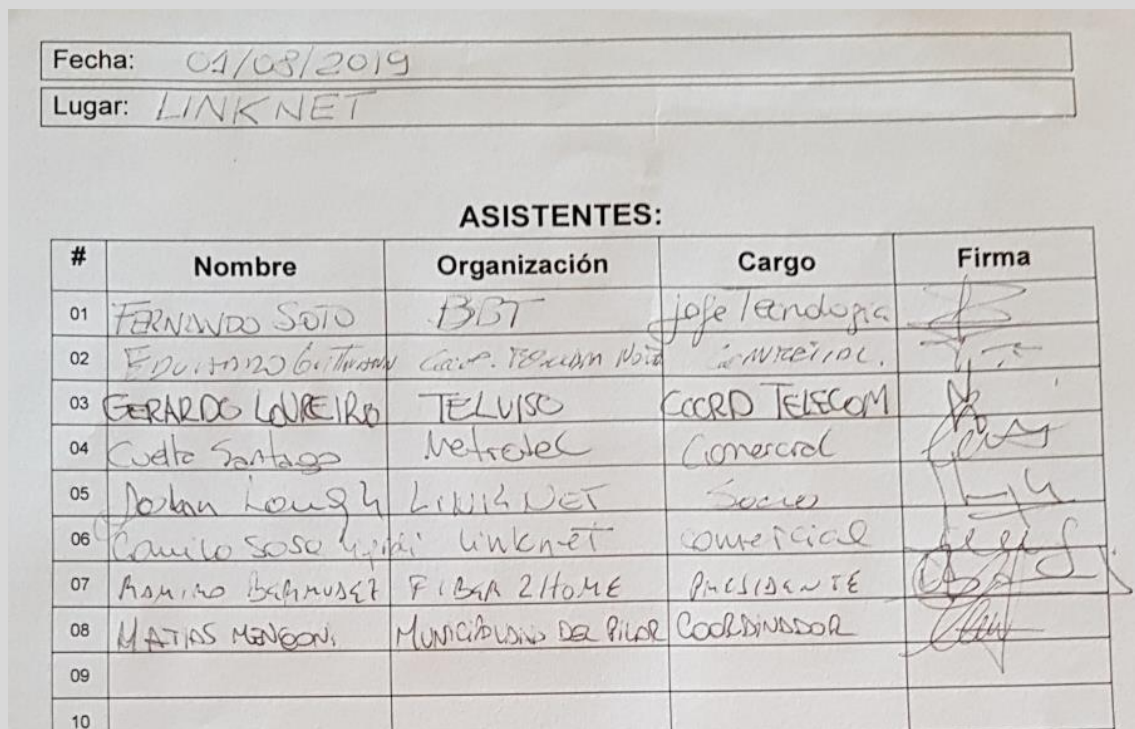 Fecha: 01/08/2019
Lugar: LINKNET
ASISTENTES:
# Nombre Organización Cargo Firma
01 FERNANDO SOTO BBT jefe Tecnologia
02 EDUARDO
03 GERARDO LOUREIRO TELVISO COORD TELECOM
04 Cuello Santiago Metrotel Comercial
05 Lough LINKNET Socio
06 Camilo Sosa linknet comercial
07 RAMIRO BERMUDEZ FIBER 2 HOME PRESIDENTE
08 MATIAS MENGONI MUNICIPALIDAD DEL PILAR COORDINADOR
09
10